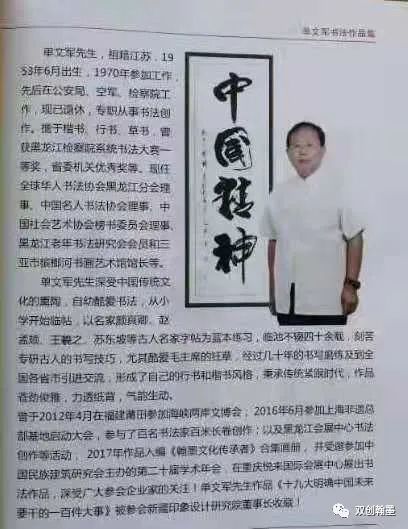 单文军书法作品集
单文军先生，祖籍江苏，19
53年6月出生，1970年参加工作，
先后在公安局、空军、检察院工
作，现已退休，专职从事书法创
作。擅于楷书、行书、草书，曾
获黑龙江检察院系统书法大赛一
等奖，省委机关优秀奖等。现任
全球华人书法协会黑龙江分会理
事、中国名人书法协会理事、中
国社会艺术协会榜书委员会理事、
黑龙江老年书法研究会会员和三
亚市槟榔河书画艺术馆馆长等。
单文军先生深受中国传统文
化的熏陶，自幼酷爱书法，从小
学开始临帖，以名家颜真卿、赵
孟頫、王羲之、苏东坡等古人名家字帖为蓝本练习，临池不辍四十余载，刻苦
专研古人的书写技巧，尤其酷爱毛主席的狂草，经过几十年的书写磨练及到全
国各省市引进交流，形成了自己的行书和楷书风格，秉承传统紧跟时代，作品
苍劲俊雅，力透纸背，气韵生动。
曾于2012年4月在福建莆田参加海峡两岸文博会，2016年6月参加上海非遗总
部基地启动大会，参与了百名书法家百米长卷创作；以及黑龙江会展中心书法
创作等活动，2017年作品入编《翰墨文化传承者》合集画册，并受邀参加中
国民族建筑研究会主办的第二十届学术年会，在重庆悦来国际会展中心展出书
法作品，深受广大参会企业家的关注！单文军先生作品《十九大明确中国未来
要干的一百件大事》被参会新疆印象设计研究院董事长收藏！
中国精神
双创翰墨